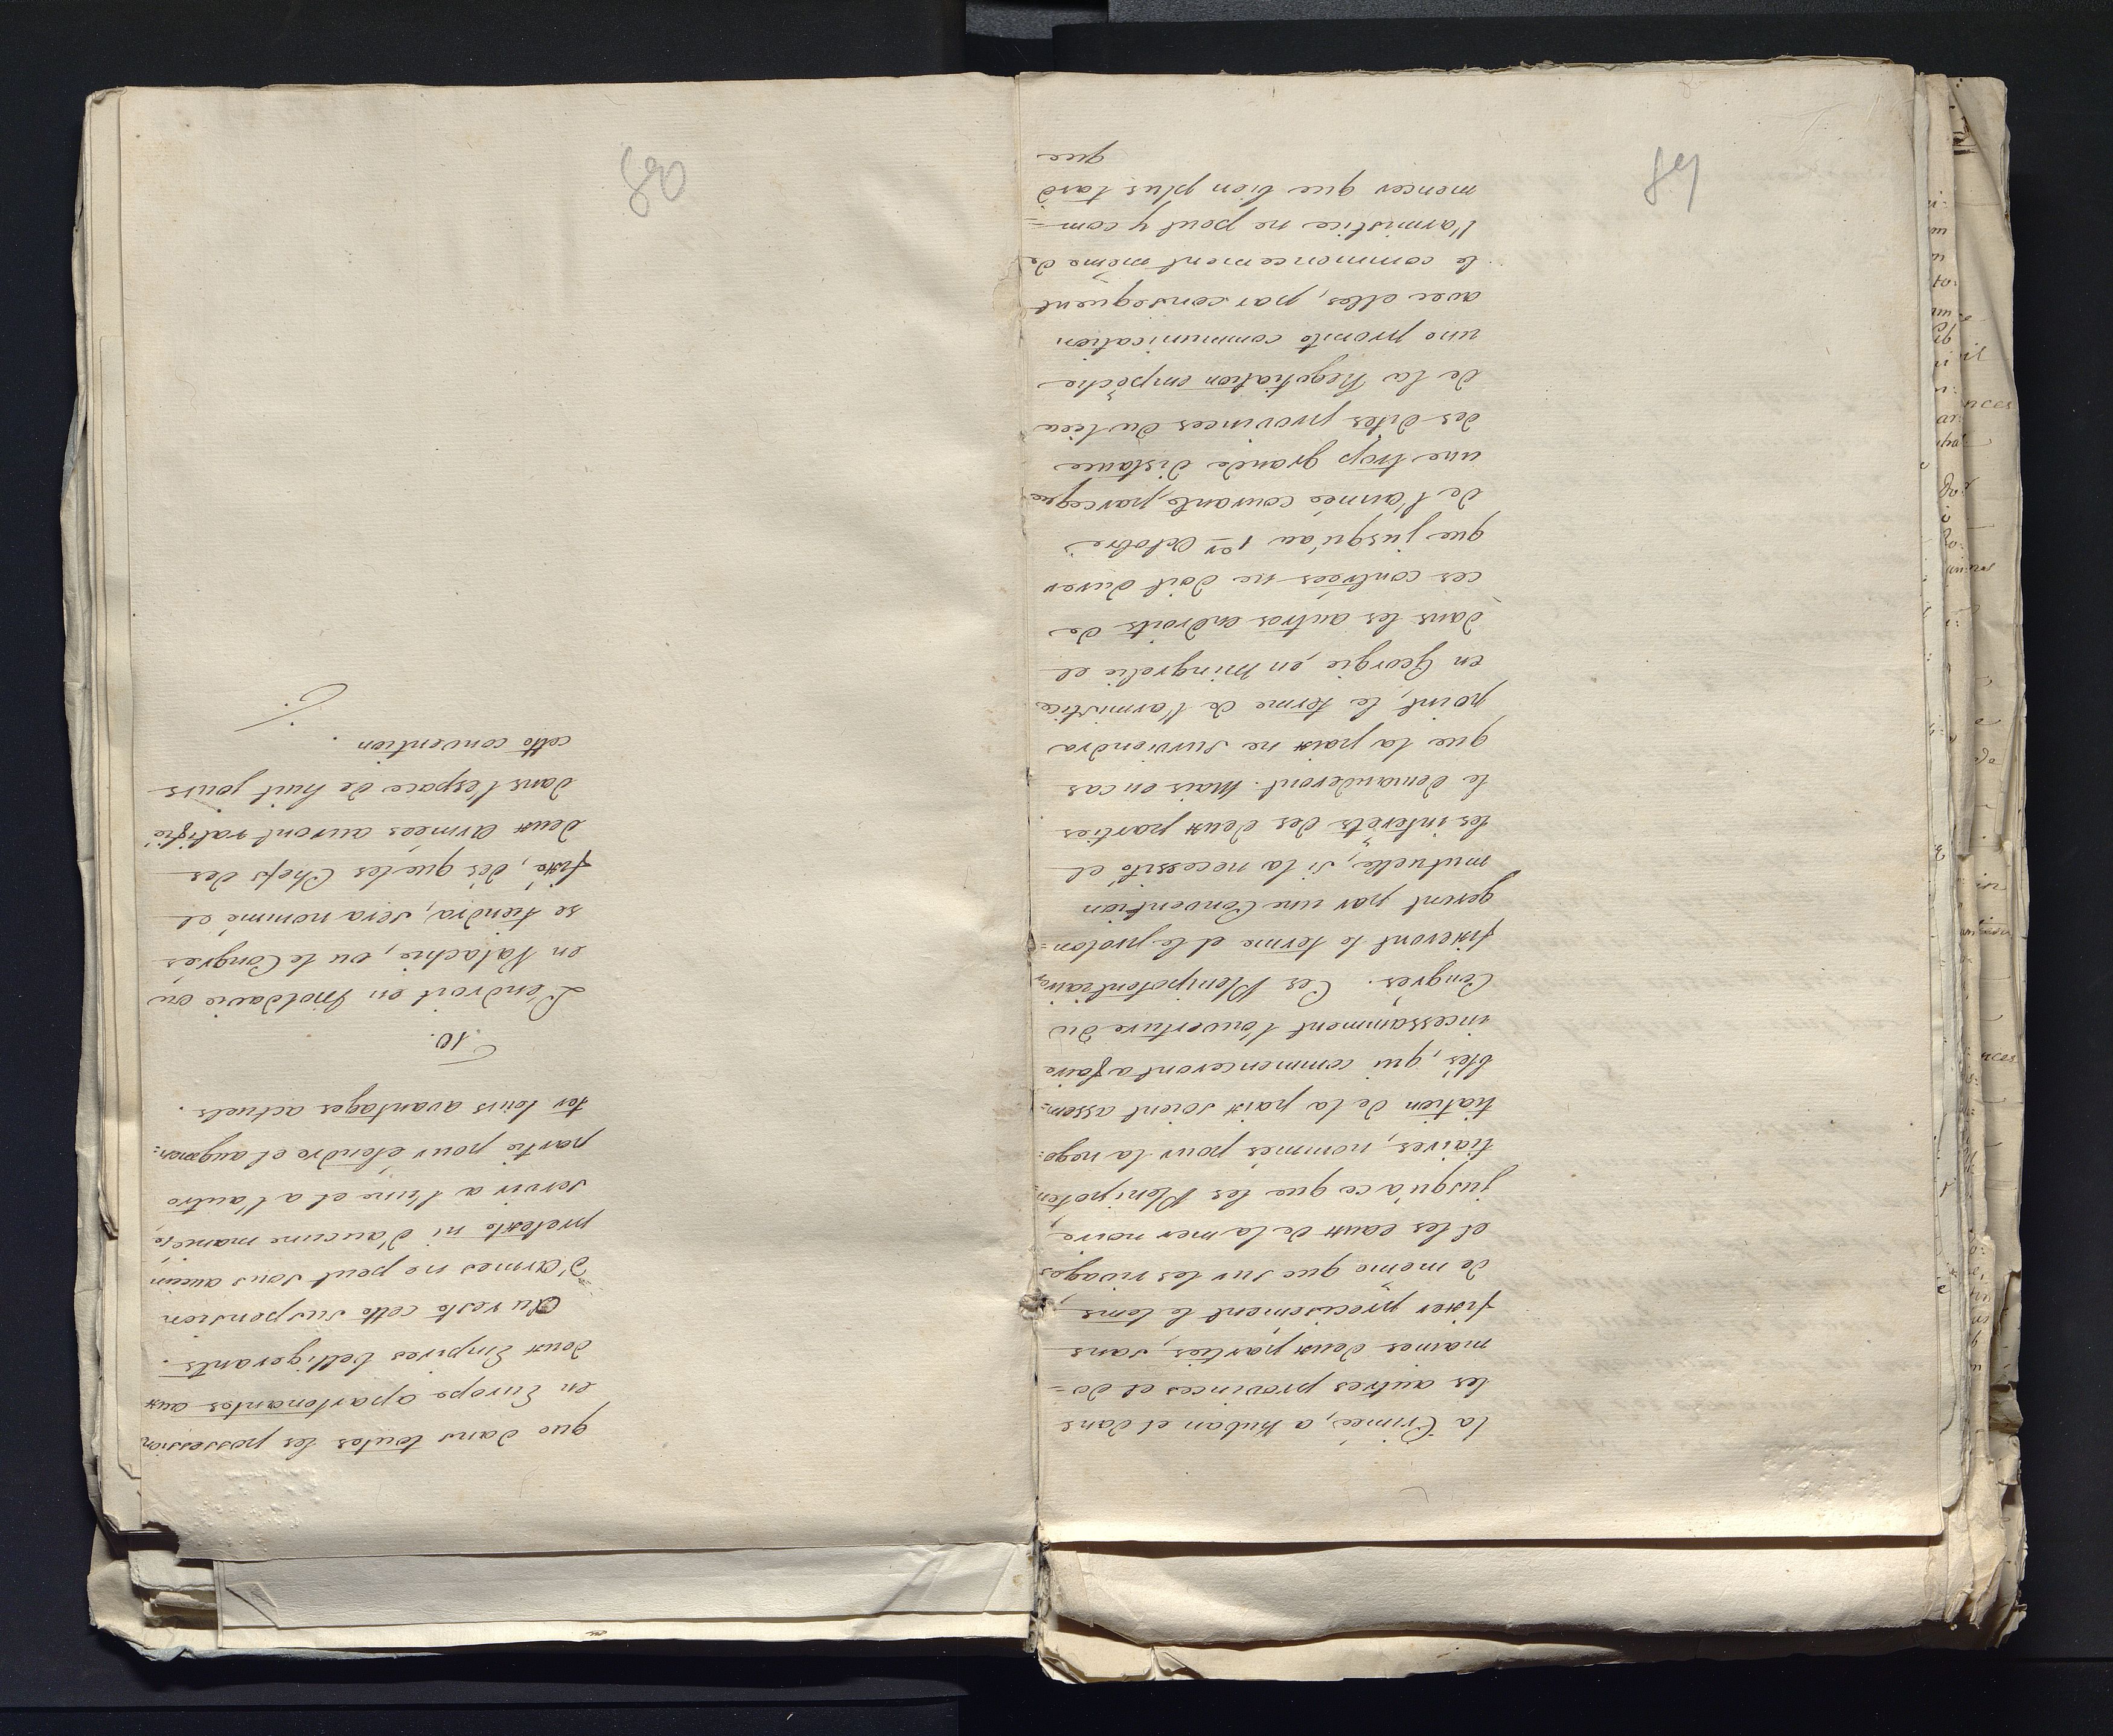 la Crimée, a Kuban et dans
les autres provinces et do=
maines deux parties, sans
fixer précisement le tems,
de même que sur les rivages
et les eaux de la mer noire,
jusqu'à ce que les Plenipoten=
tiaires, nommés pour la nego=
tiation de la paix soient assem=
blés, qui commenceront a faire
incessamment l'ouverture du
Congrés. Ces Plenipotentiaires
fixeront le terme et le prolon=
geront par une Convention
mutuelle, si la necessité et
les interêts des deux parties
le demanderont. Mais en cas
que la paix ne surviendra
point, le terme de l'armistice
en Georgie, en Mingrelie et
dans les autres endroits de
ces contrées ne doit durer
que jusqu'au 1er Octobre
de l'année courante, parceque
une trop grande distance
des dites provinces du lieu
de la Negotiation empêche
une promte communication
avec elles, par consequent
le commencement même de
l'armistice ne peut y com=
mencer que bien plus tard
que
que dans toutes les possessions
en Europe apartenantes aux
deux Empires belligerants.
Au reste cette suspension
d'armes ne peut sous aucun
pretexte ni d'aucune maniére,
servir a l'une et a l'autre
partie pour étendre et augmen=
ter leurs avantages actuels.
10.
L'endroit en Moldavie ou
en Valachie, ou le Congrés
se tiendra, sera nommé et
fixé, dès que les Chefs des
deux Armées auront ratifié
dans l'espace de huit jours
cette convention.
80